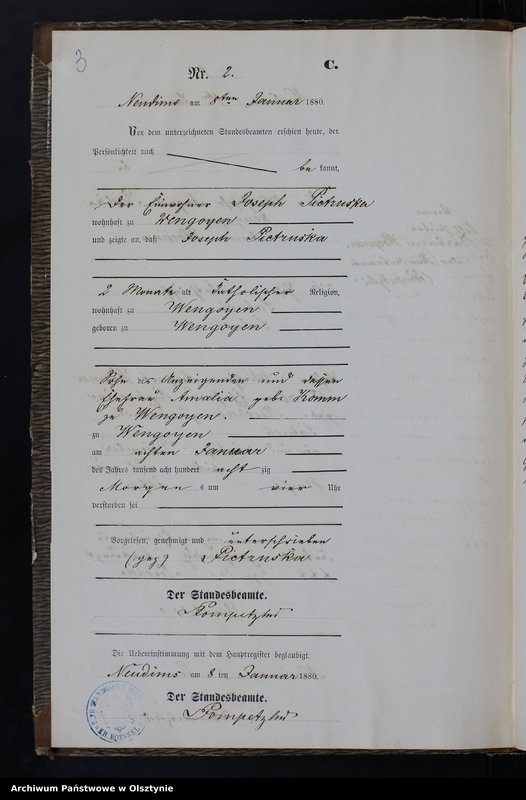 3
C.
Nr. 2.
Neudims am 8ten Januar 1880.
Vor dem unterzeichneten Standesbeamten erschien heute, der
Persönlichkeit nach
be kannt,
der Einwohner Joseph Pietruska
wohnhaft zu Wengoyen
und zeigte an, daß Joseph Pietruska
2 Monate alt katholischer Religion,
wohnhaft zu Wengoyen
geboren zu Wengoyen
Sohn des Anzeigenden und dessen
Ehefrau Amalia geb. Komm
zu Wengoyen.
zu Wengoyen
am achten Januar
des Jahres tausend acht hundert acht zig
Morgens um vier Uhr
verstorben sei
Vorgelesen, genehmigt und unterschrieben
(gez) Pietruska
Der Standesbeamte.
Die Uebereinstimmung mit dem Hauptregister beglaubigt.
Neudims am 8 ten Januar 1880.
Der Standesbeamte.
KR. ROESSEL
Archiwum Państwowe w Olsztynie